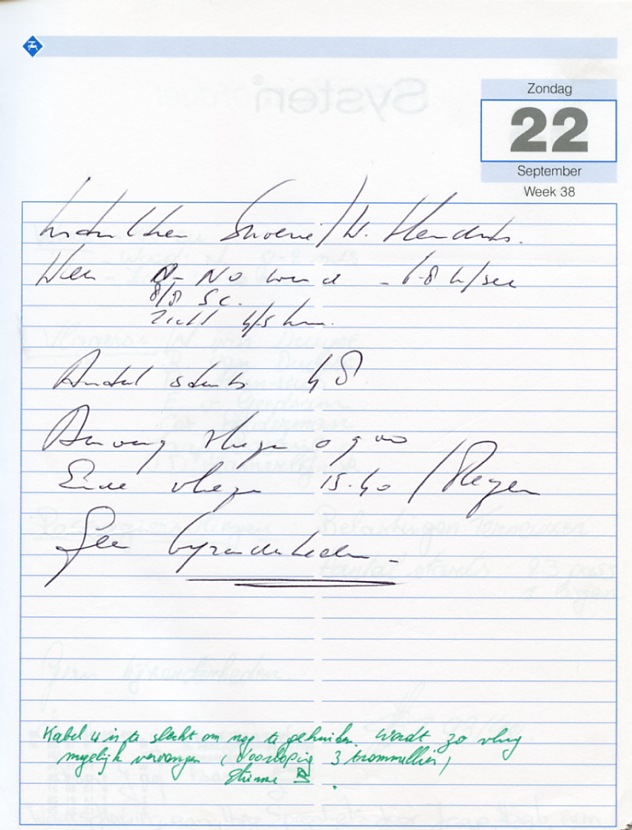 Zondag
22
September
Week 38
Instructeur / W.
Weer N-NO wind - 6-8 m/sec
8/8 SC.
Zicht 4/5 km.
Aantal starts 48
Aanvang vliegen 0900
Einde vliegen 15.40 / Regen
Geen bijzonderheden -
Kabel 4 is te slecht om nog te gebruiken. Wordt zo vlug
mogelijk vervangen (Voorlopig 3 trommellier)